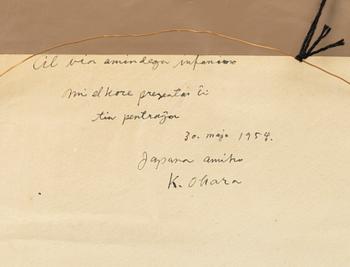 Al via amindega infanino
mi elkore prezentas ĉi
tiu pentraĵon
30. majo 1954.
Japana amiko
K. Ohara